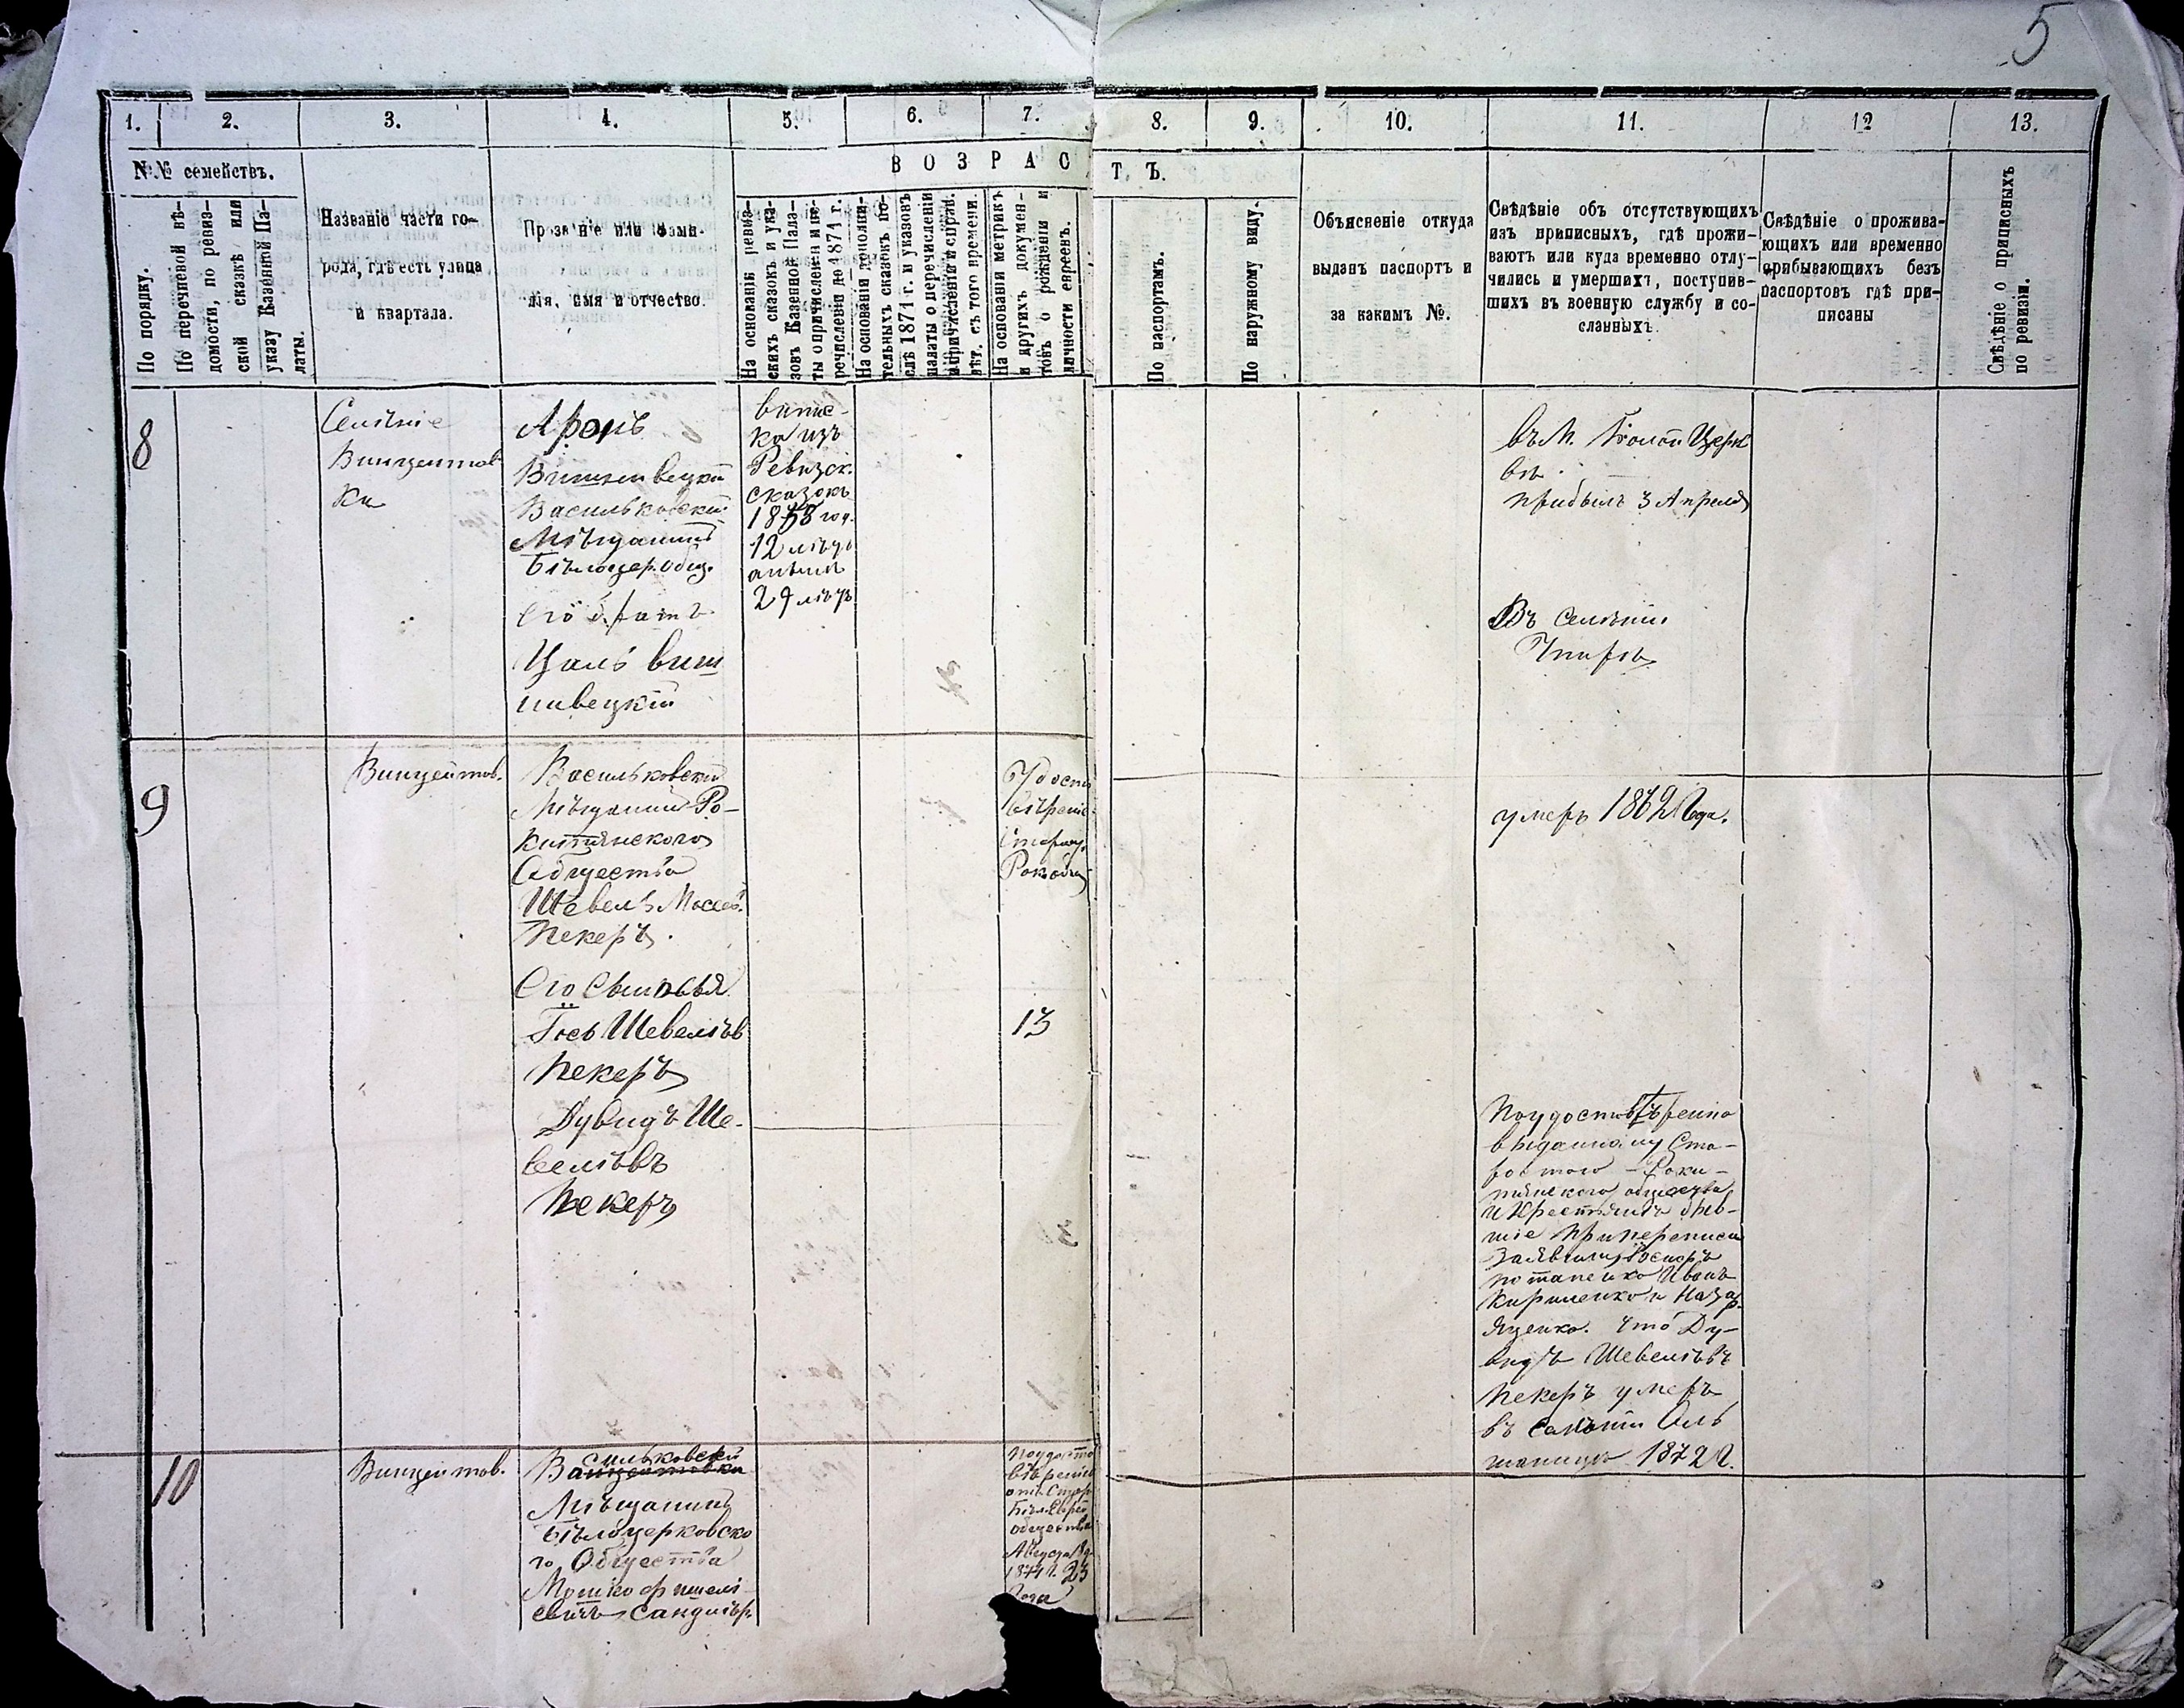 5
1. 2. 3. 4. 5. 6. 7. 8. 9. 10. 11. 12 13.
№.№ семействъ.
По порядку.
По перечневой вѣ-
домости, по ревиз-
ской сказкѣ или
указу Казенной Па-
латы.
Названіе части го-
рода, гдѣ есть улица
и квартала.
Прозваніе или фами-
лія, имя и отчество.
ВОЗРАСТЪ.
На основаніи ревиз-
скихъ сказокъ и ука-
зовъ Казенной Пала-
ты о причисленіи и пе-
речисленіи до 1871 г.
На основаніи дополни-
тельныхъ сказокъ по-
слѣ 1871 г. и указовъ
палаты о перечисленіи
и причисленіи и справ.
лѣт. съ того времени.
На основаніи метрикъ
и другихъ докумен-
товъ о рожденіи и
личности евреевъ.
По паспортамъ.
По наружному виду.
Объясненіе откуда
выданъ паспортъ и
за какимъ №.
Свѣдѣніе объ отсутствующихъ
изъ приписныхъ, гдѣ прожи-
ваютъ или куда временно отлу-
чились и умершихъ, поступив-
шихъ въ военную службу и со-
сланныхъ.
Свѣдѣніе о прожива-
ющихъ или временно
прибывающихъ безъ
паспортовъ гдѣ при-
писаны
Свѣдѣніе о приписныхъ
по ревизіи.
8
Селѣніе
Винцентов
ка
Аронъ
Вишневецкій
Васильковскій
Мѣщанинъ
Бѣлоцер. общ.
его братъ
Цаль виш
нивецкій
выпис-
ка изъ
Ревизск.
сказокъ
1858 год.
12 лѣтъ
анынѣ
29 лѣтъ
въ М. Бѣлой Церк
вѣ
прибылъ 3 Апреля
Въ селѣніи
9
Винцентов.
Васильковскій
Мѣщанинъ Ро-
китянского
Общества
Шевель Мошков.
Пекеръ.
Его Сыновья
Гось Шевелѣвъ
Пекеръ
Дувидъ Ше-
велѣвъ
Пекеръ
Удосто
вѣреніе
Старос.
Рок. общ.
13
умеръ 1862 Года.
По удостовѣренію
выданному Ста-
ростою Раки-
тянского общества
и Крестьянъ быв-
шіе при переписи
Заявили,
Потапенко Иванъ
Кириленко и Назар
Яценко. что Ду-
видъ Шевелѣвъ
Пекеръ умеръ
въ селѣніи Оль
шаницѣ 1872 г.
10
Винцентов.
сильковскій
Винцентовка
Мѣщанинъ
Бѣлоцерковско
го, Общества
Мошко
евичъ Сандлѣръ
По удосто
вѣренію
отъ Старос
Бѣл. Церко
общества
Августа
1874 г. 23
Года